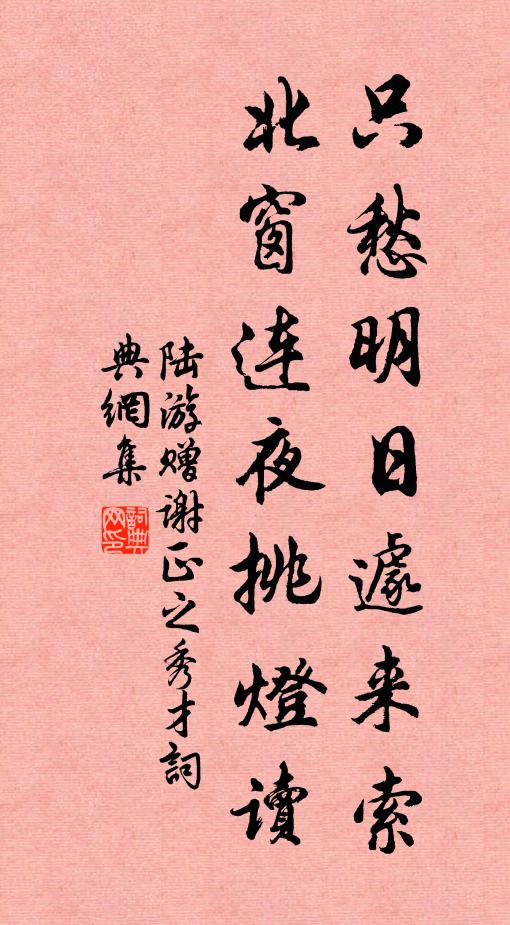 只愁明日遽来索
北窗连夜挑燈读
陆游赠谢正之秀才詞
典網集
詞典
网印